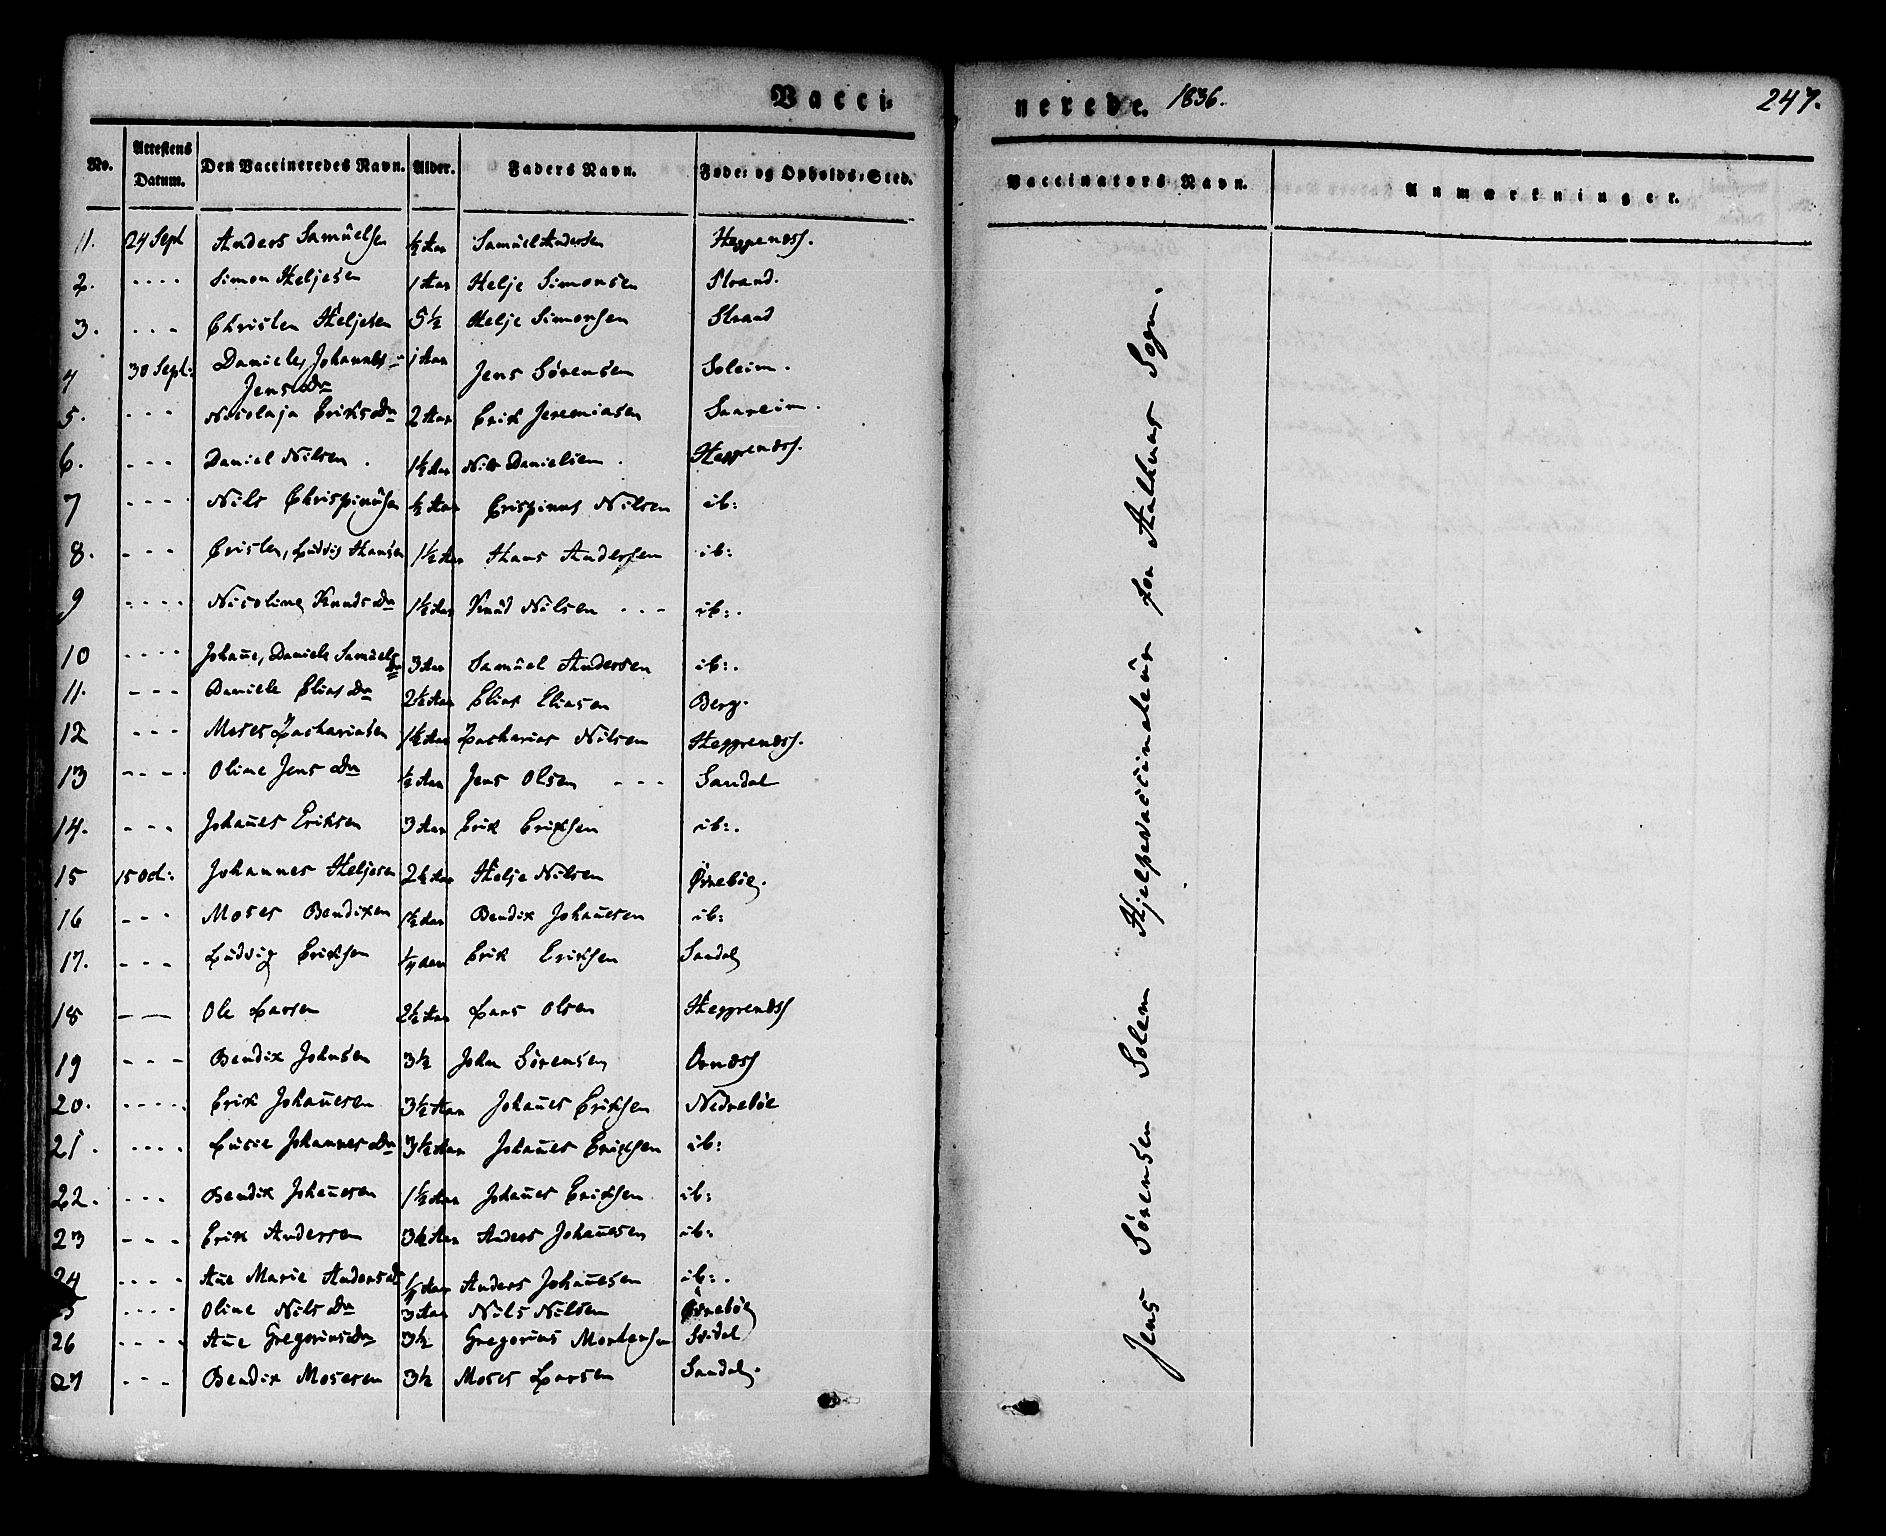 Vacci-
nerede. 1836. 247.
No. Attestens Datum. Den Vaccineredes Navn. Alder. Faders Navn. Føde- og Opholds-Sted.
Vaccinators Navn. Anmærkninger.
11. 24 Sept Anders Samuelsen ½ Aar Samuel Andersen Heggenæss.
2. - - - - Simon Heljesen 1 Aar Helje Simonsen Strand.
3. - - - Christen Heljesen 5½ Helje Simonsen Strand
4 30 Sept: Daniele, Johannes- 1 Aar Jens Sørensen Soleim.
JensDr
5. - - - Nicolaja EriksDr 2 Aar Erik Jeremiasen Saareim.
6. - - - Daniel Nilsen. 1½ Aar Nils Danielsen. Heggrenæss.
7 - - - - Nils Chrispinusen ½ Aar Crispinus Nilsen ib:
8. - - - Cristen, Ludvig Hansen 1½ Aar Hans Andersen ib:
9 - - - - Nicoline KnudsDr 1½ Aar Knud Nilsen - - - ib:.
10 - - - - Johañe, Daniele Samuels Dr 3 Aar Samuel Andersen ib:.
11. - - - Daniele EliasDr 2½ Aar Elias Eliasen Berg.
12 - - - Moses Zachariasen 1½ Aar Zacharias Nilsen Heggrenæss.
13 - - - - Oline Jens Dr ½ Aar Jens Olsen - - - Sandal
14. - - - Johañes Eriksen 3 Aar Erik Eriksen ib:.
15 15 Oct: Johannes Heljesen 2½ Aar Helje Nilsen Ørnebøe.
16 - - - Moses Bendixen 1½ Aar Bendix Johañesen ib:
17. - - - Ludvig Eriksen ¼ Aar Erik Eriksen Sandal
18 - - Ole Larsen 2½ Aar Lars Olsen Heggrenæss
19 - - - Bendix Johnsen 3½ John Sørensen Ornæss
20. - - - - Erik Johañesen 3½ Aar Johañes Eriksen Nedrebøe
21. - - - - Lucie JohannesDr 3½ Aar Johañes Eriksen ib:
22. - - - Bendix Johañesen 1½ Aar Johañes Eriksen ib:
23 - - - Erik Andersen 3½ Aar Anders Johañesen ib:
24 - - - - Añe Marie AndersDr ¼ Aar Anders Johañesen ib:.
5 - - - - Oline NilsDr 3 Aar Nils Nilsen Ørnebøe
26 - - - - Añe GregoriusDr 3½ Gregorius Mortensen Svidal
27 - - - Bendix Mosesen 3½ Moses Larsen Sandal.
Jens Sørensen Solem Hjelpevaccinateur for Aalhuus Sogn.